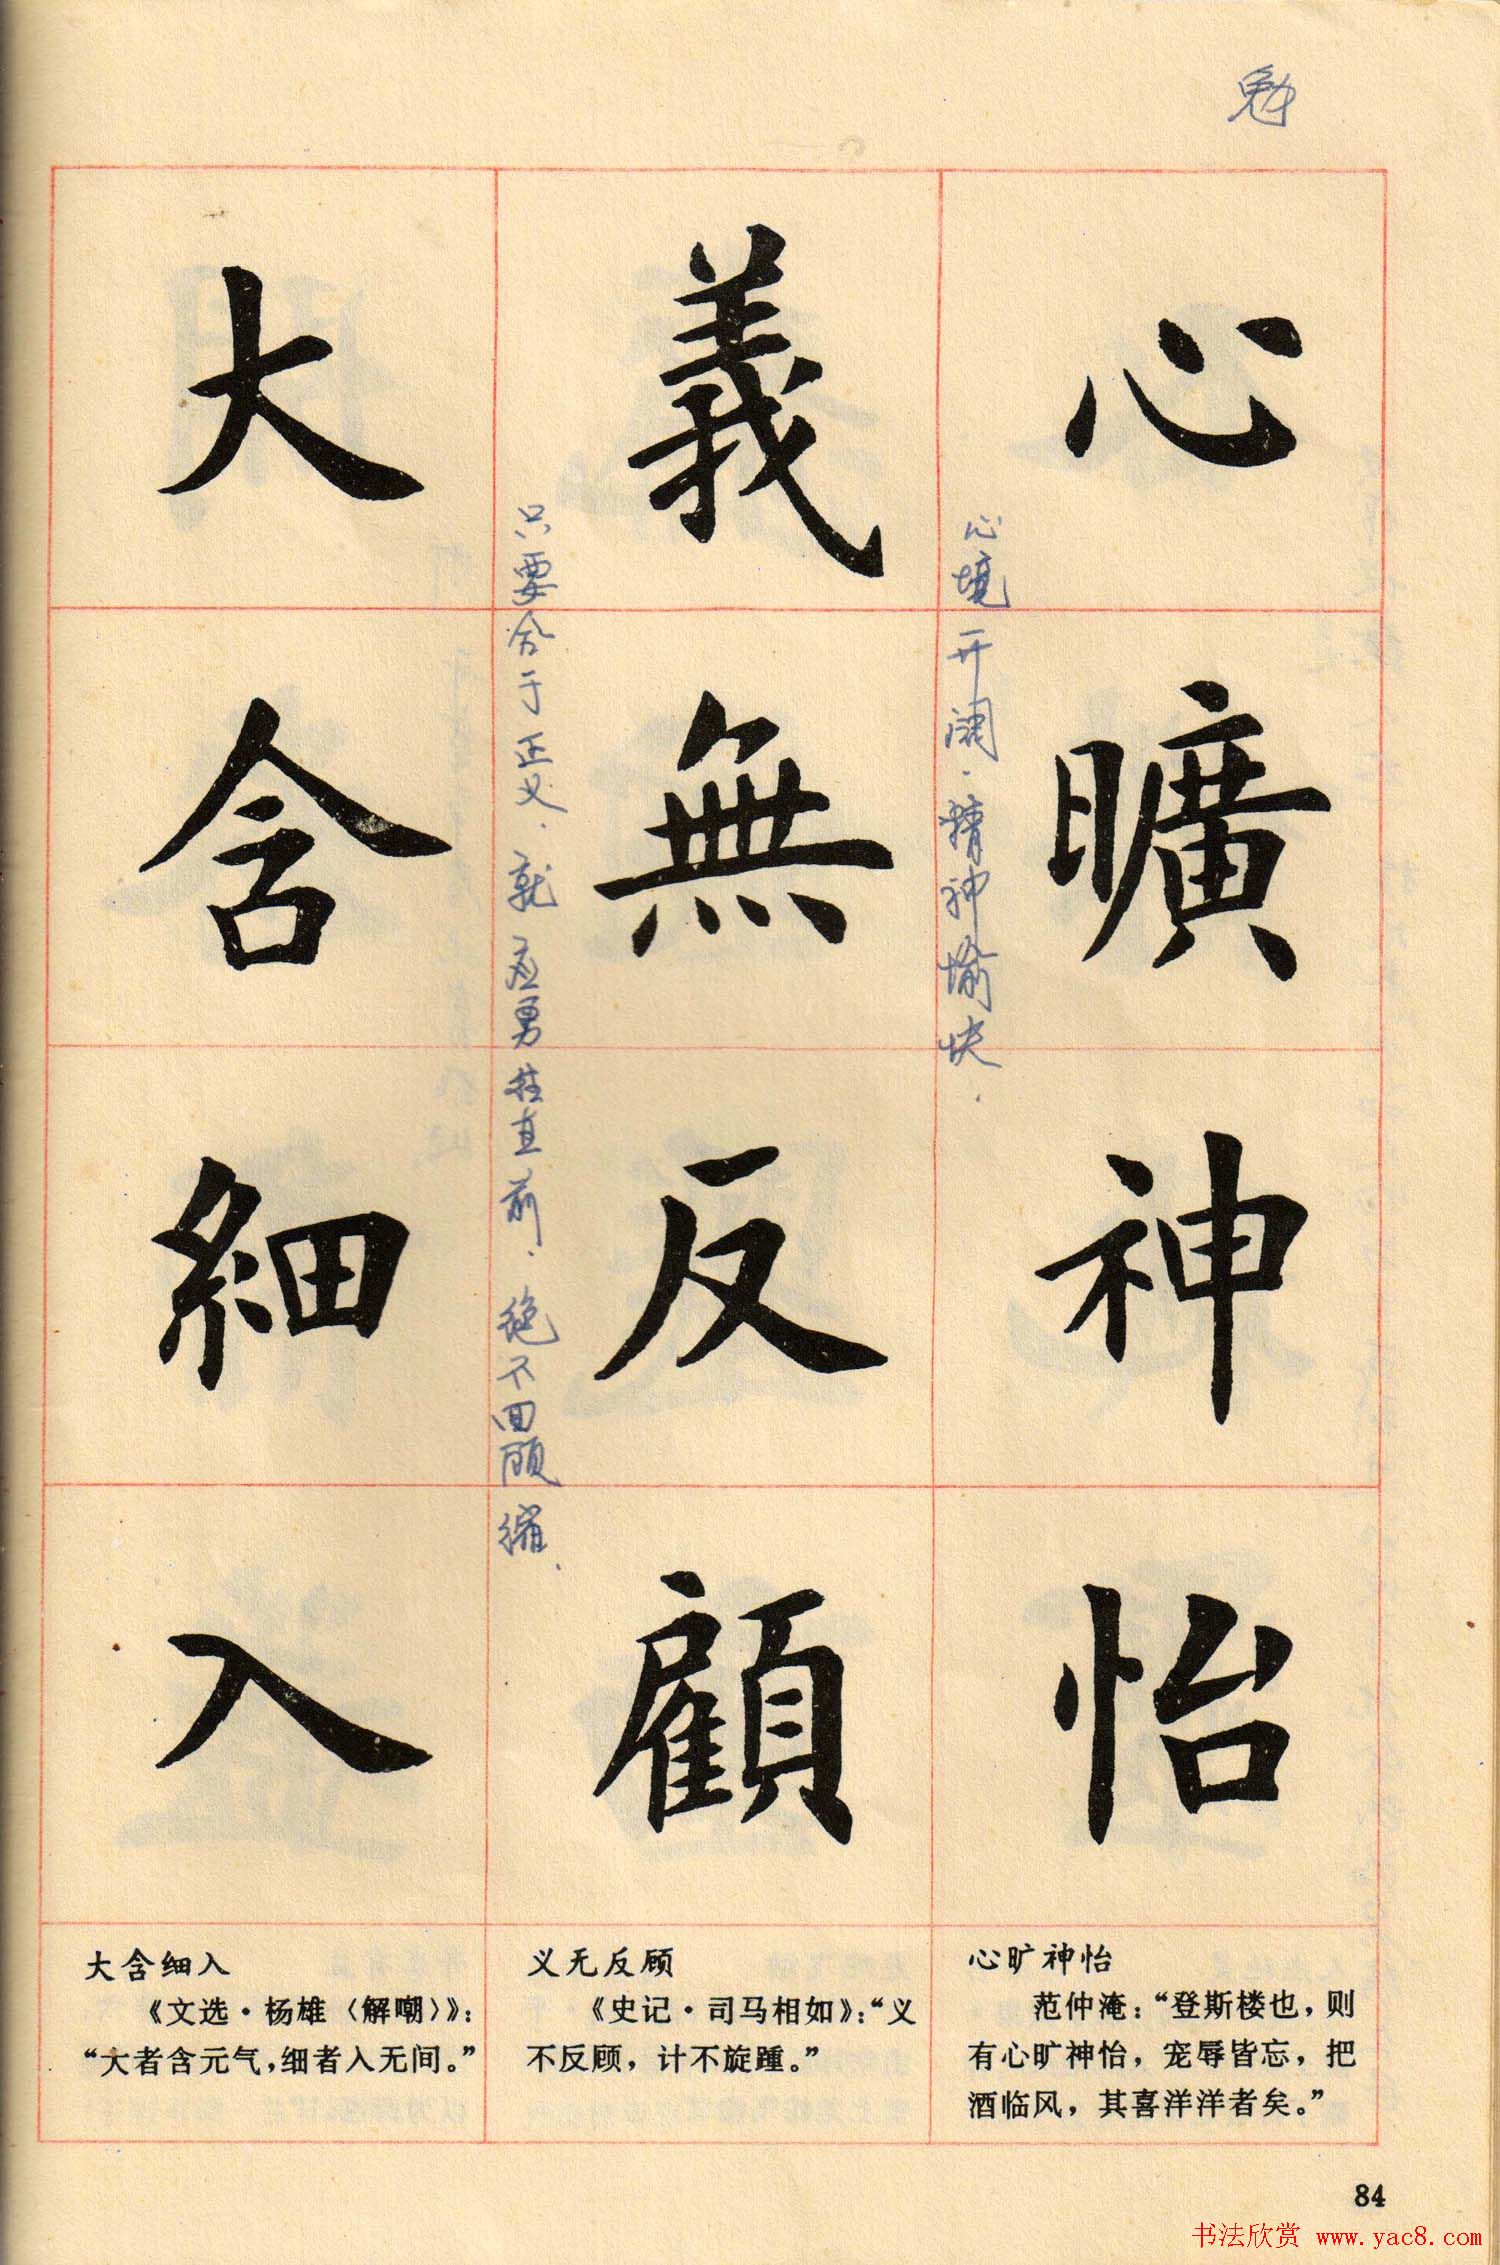 勉
心曠神怡
心境开阔.精神愉快.
義無反顧
只要合于正义.就应勇往直前.绝不回顾缩.
大含细入
心旷神怡
范仲淹：“登斯楼也，则
有心旷神怡，宠辱皆忘，把
酒临风，其喜洋洋者矣。”
义无反顾
《史记·司马相如》：“义
不反顾，计不旋踵。”
大含细入
《文选·杨雄〈解嘲〉》：
“大者含元气，细者入无间。”
84
书法欣赏 www.yac8.com